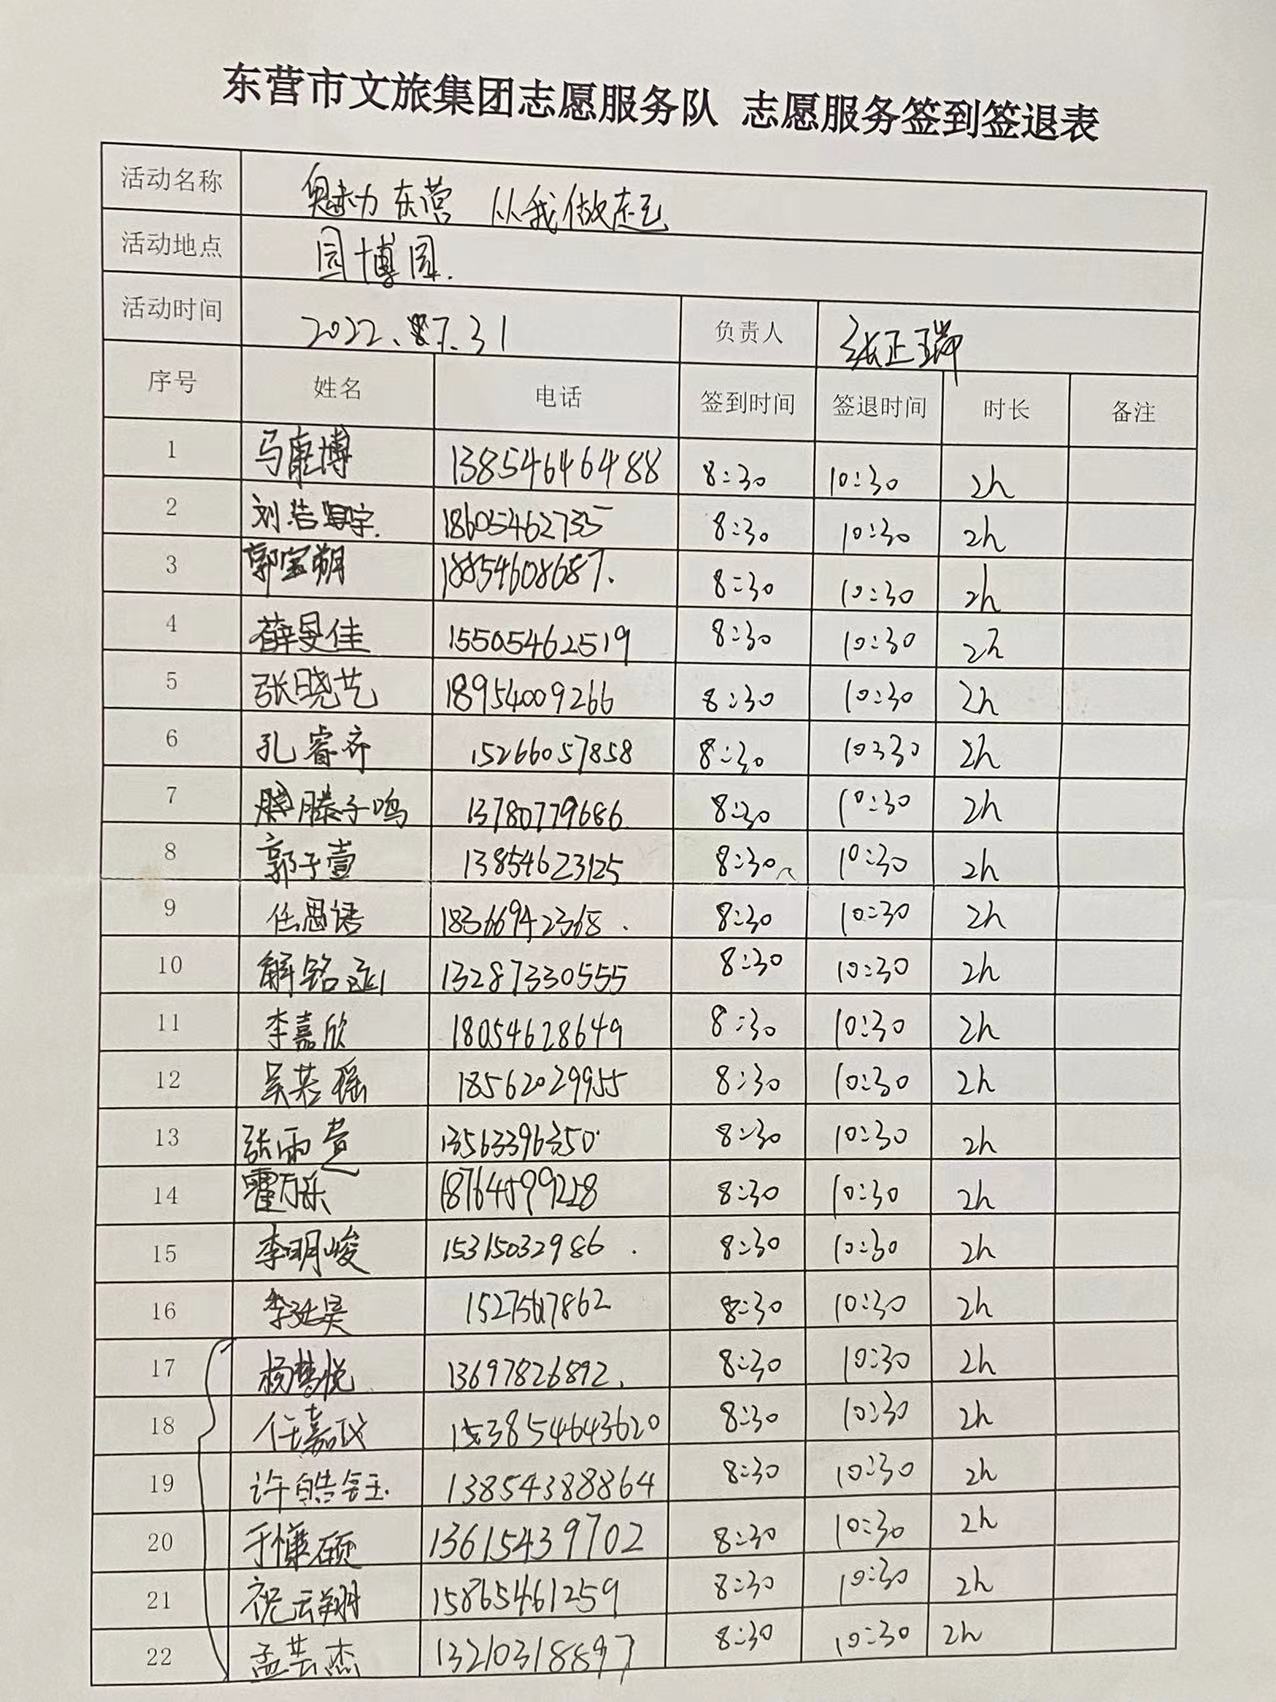 东营市文旅集团志愿服务队 志愿服务签到签退表
活动名称 魅力东营 从我做起
活动地点 园博园.
活动时间 2022.7.31 负责人 张正瑞
序号 姓名 电话 签到时间 签退时间 时长 备注
1 马康博 13854646488 8:30 10:30 2h
2 刘浩宇. 18605462735 8:30 10:30 2h
3 郭宝朔 18854608687. 8:30 10:30 2h
4 薛旻佳 15505462519 8:30 10:30 2h
5 张晓艺 18954009266 8:30 10:30 2h
6 孔睿齐 15266057858 8:30 10:30 2h
7 滕子鸣 13780779686 8:30 10:30 2h
8 郭子壹 13854623125 8:30 10:30 2h
9 任思语 18366942368. 8:30 10:30 2h
10 解铭 13287330555 8:30 10:30 2h
11 李嘉欣 18054628649 8:30 10:30 2h
12 吴若瑶 18562029955 8:30 10:30 2h
13 张雨 13563396350. 8:30 10:30 2h
14 霍乐 18764599228 8:30 10:30 2h
15 李明峻 15315032986. 8:30 10:30 2h
16 李延昊 8:30 10:30 2h
17 杨梦悦 13697826892. 8:30 10:30 2h
18 任嘉仪 13854643620 8:30 10:30 2h
19 许皓钰. 13854388864 8:30 10:30 2h
20 于硕 13615439702 8:30 10:30 2h
21 祝云翔 15865461259 8:30 10:30 2h
22 孟芸杰 13210318897 8:30 10:30 2h